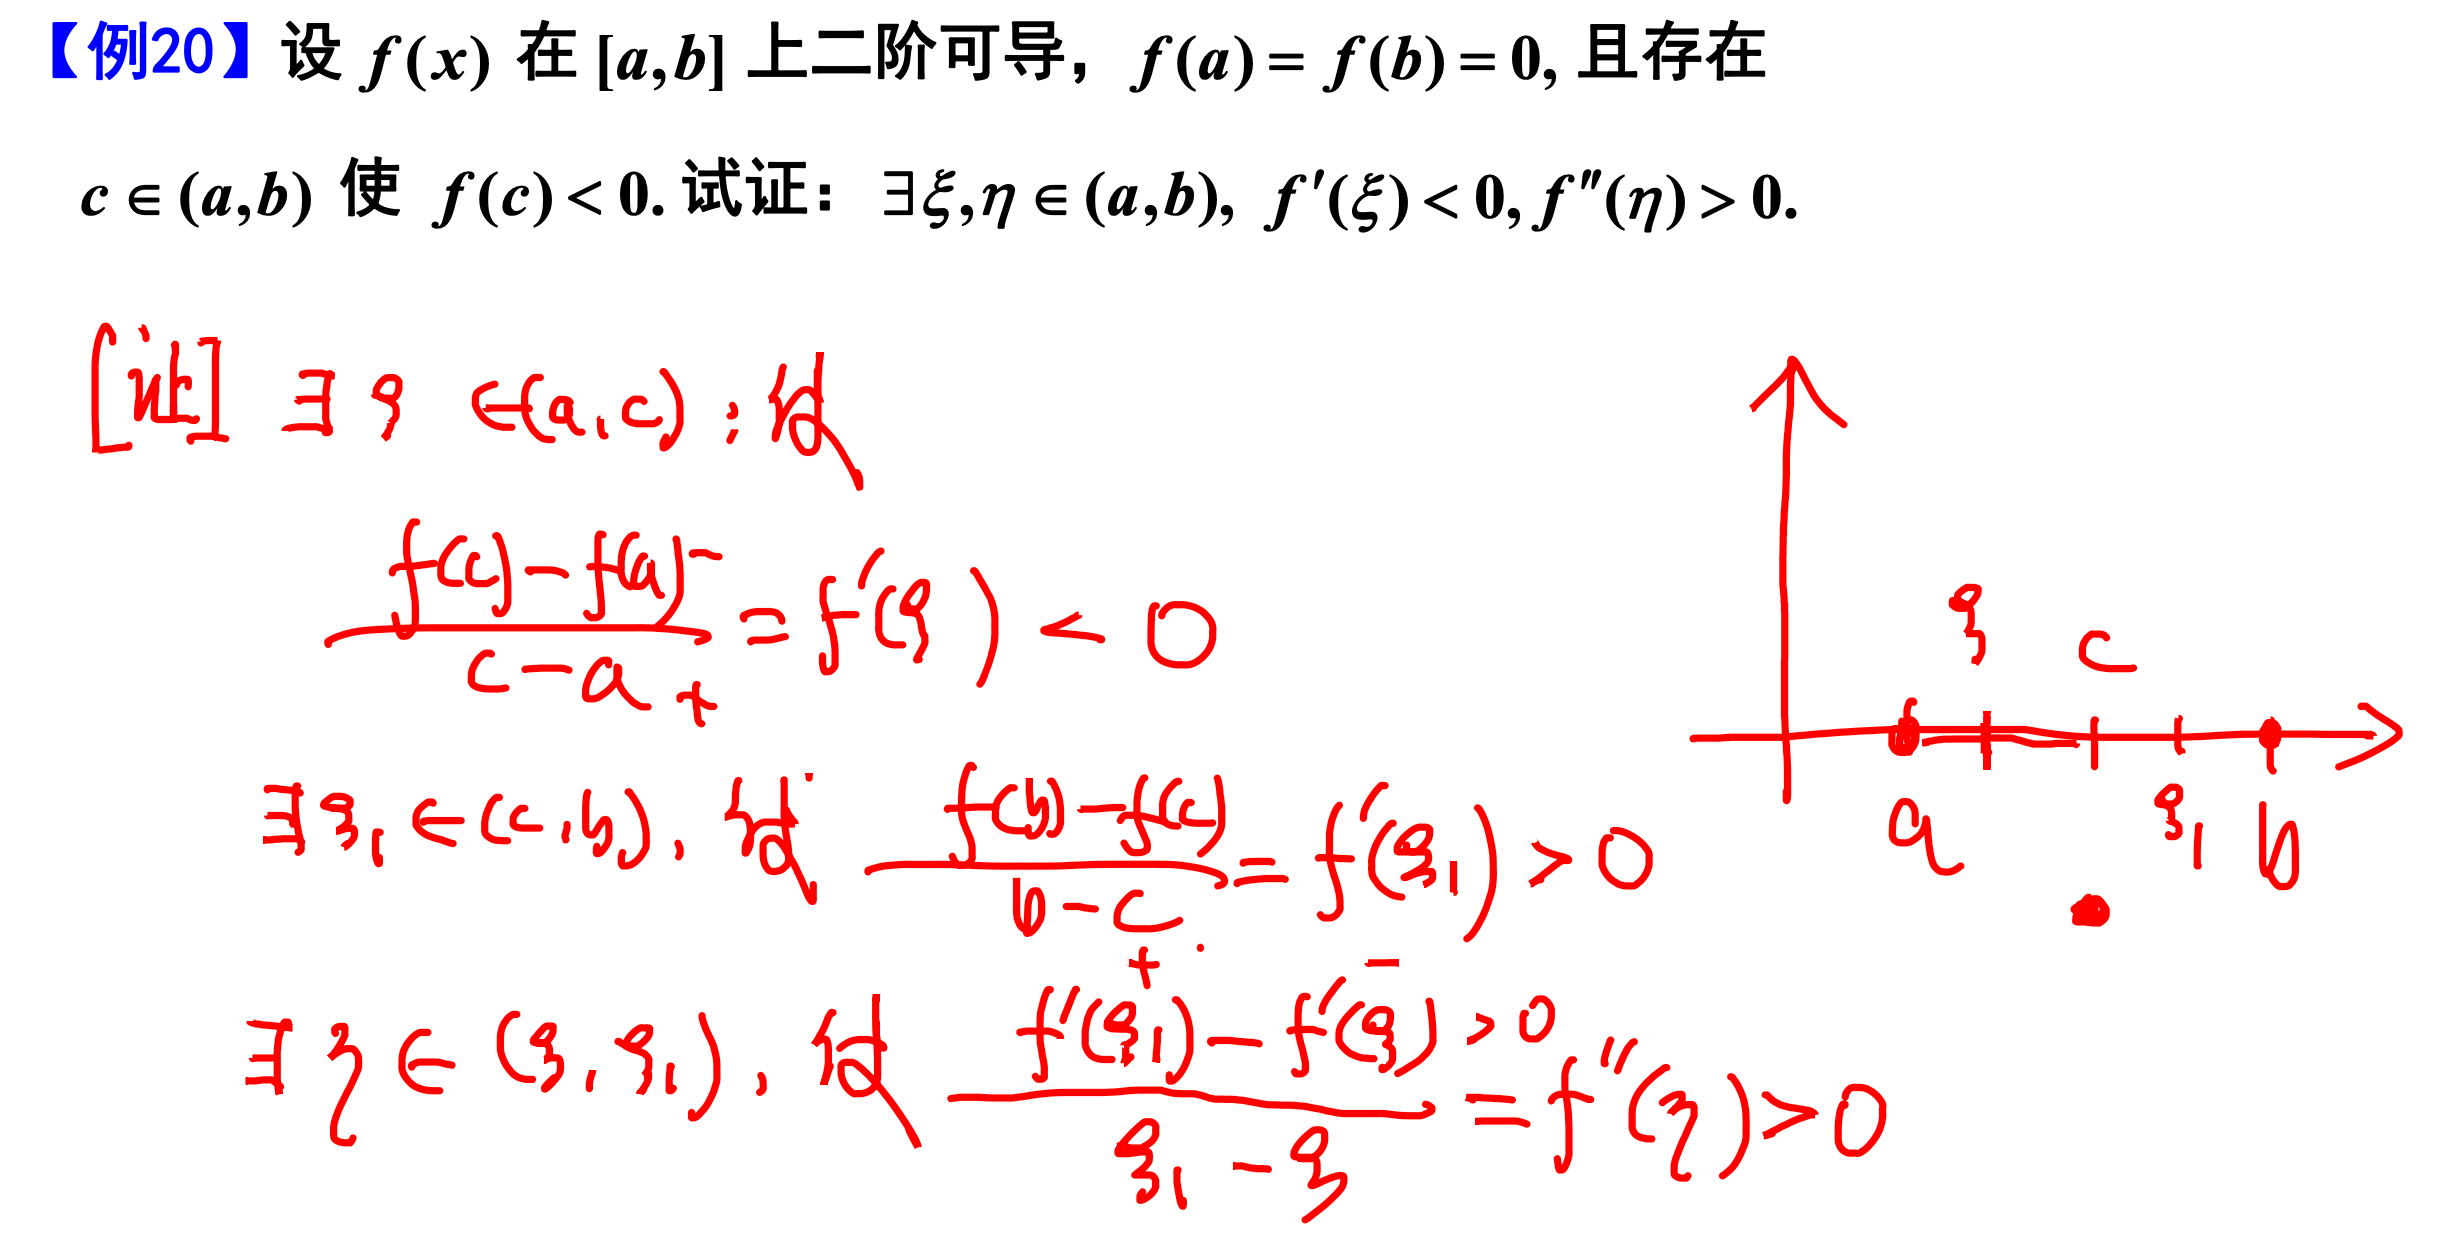 【例20】设 f(x) 在 [a,b] 上二阶可导，f(a) = f(b) = 0, 且存在
c ∈ (a,b) 使 f(c) < 0. 试证：∃ξ,η ∈ (a,b), f′(ξ) < 0, f″(η) > 0.
[证] ∃ ξ ∈ (a, c), 使
(f(c) − f(a))⁻ / (c − a)₊ = f′(ξ) < 0
∃ ξ₁ ∈ (c, b), 使 (f(b) − f(c)) / (b − c) = f′(ξ₁) > 0
+ −
∃ η ∈ (ξ, ξ₁), 使 (f′(ξ₁) − f′(ξ)) / (ξ₁ − ξ) = f″(η) > 0
> 0
ξ c
a ξ₁ b